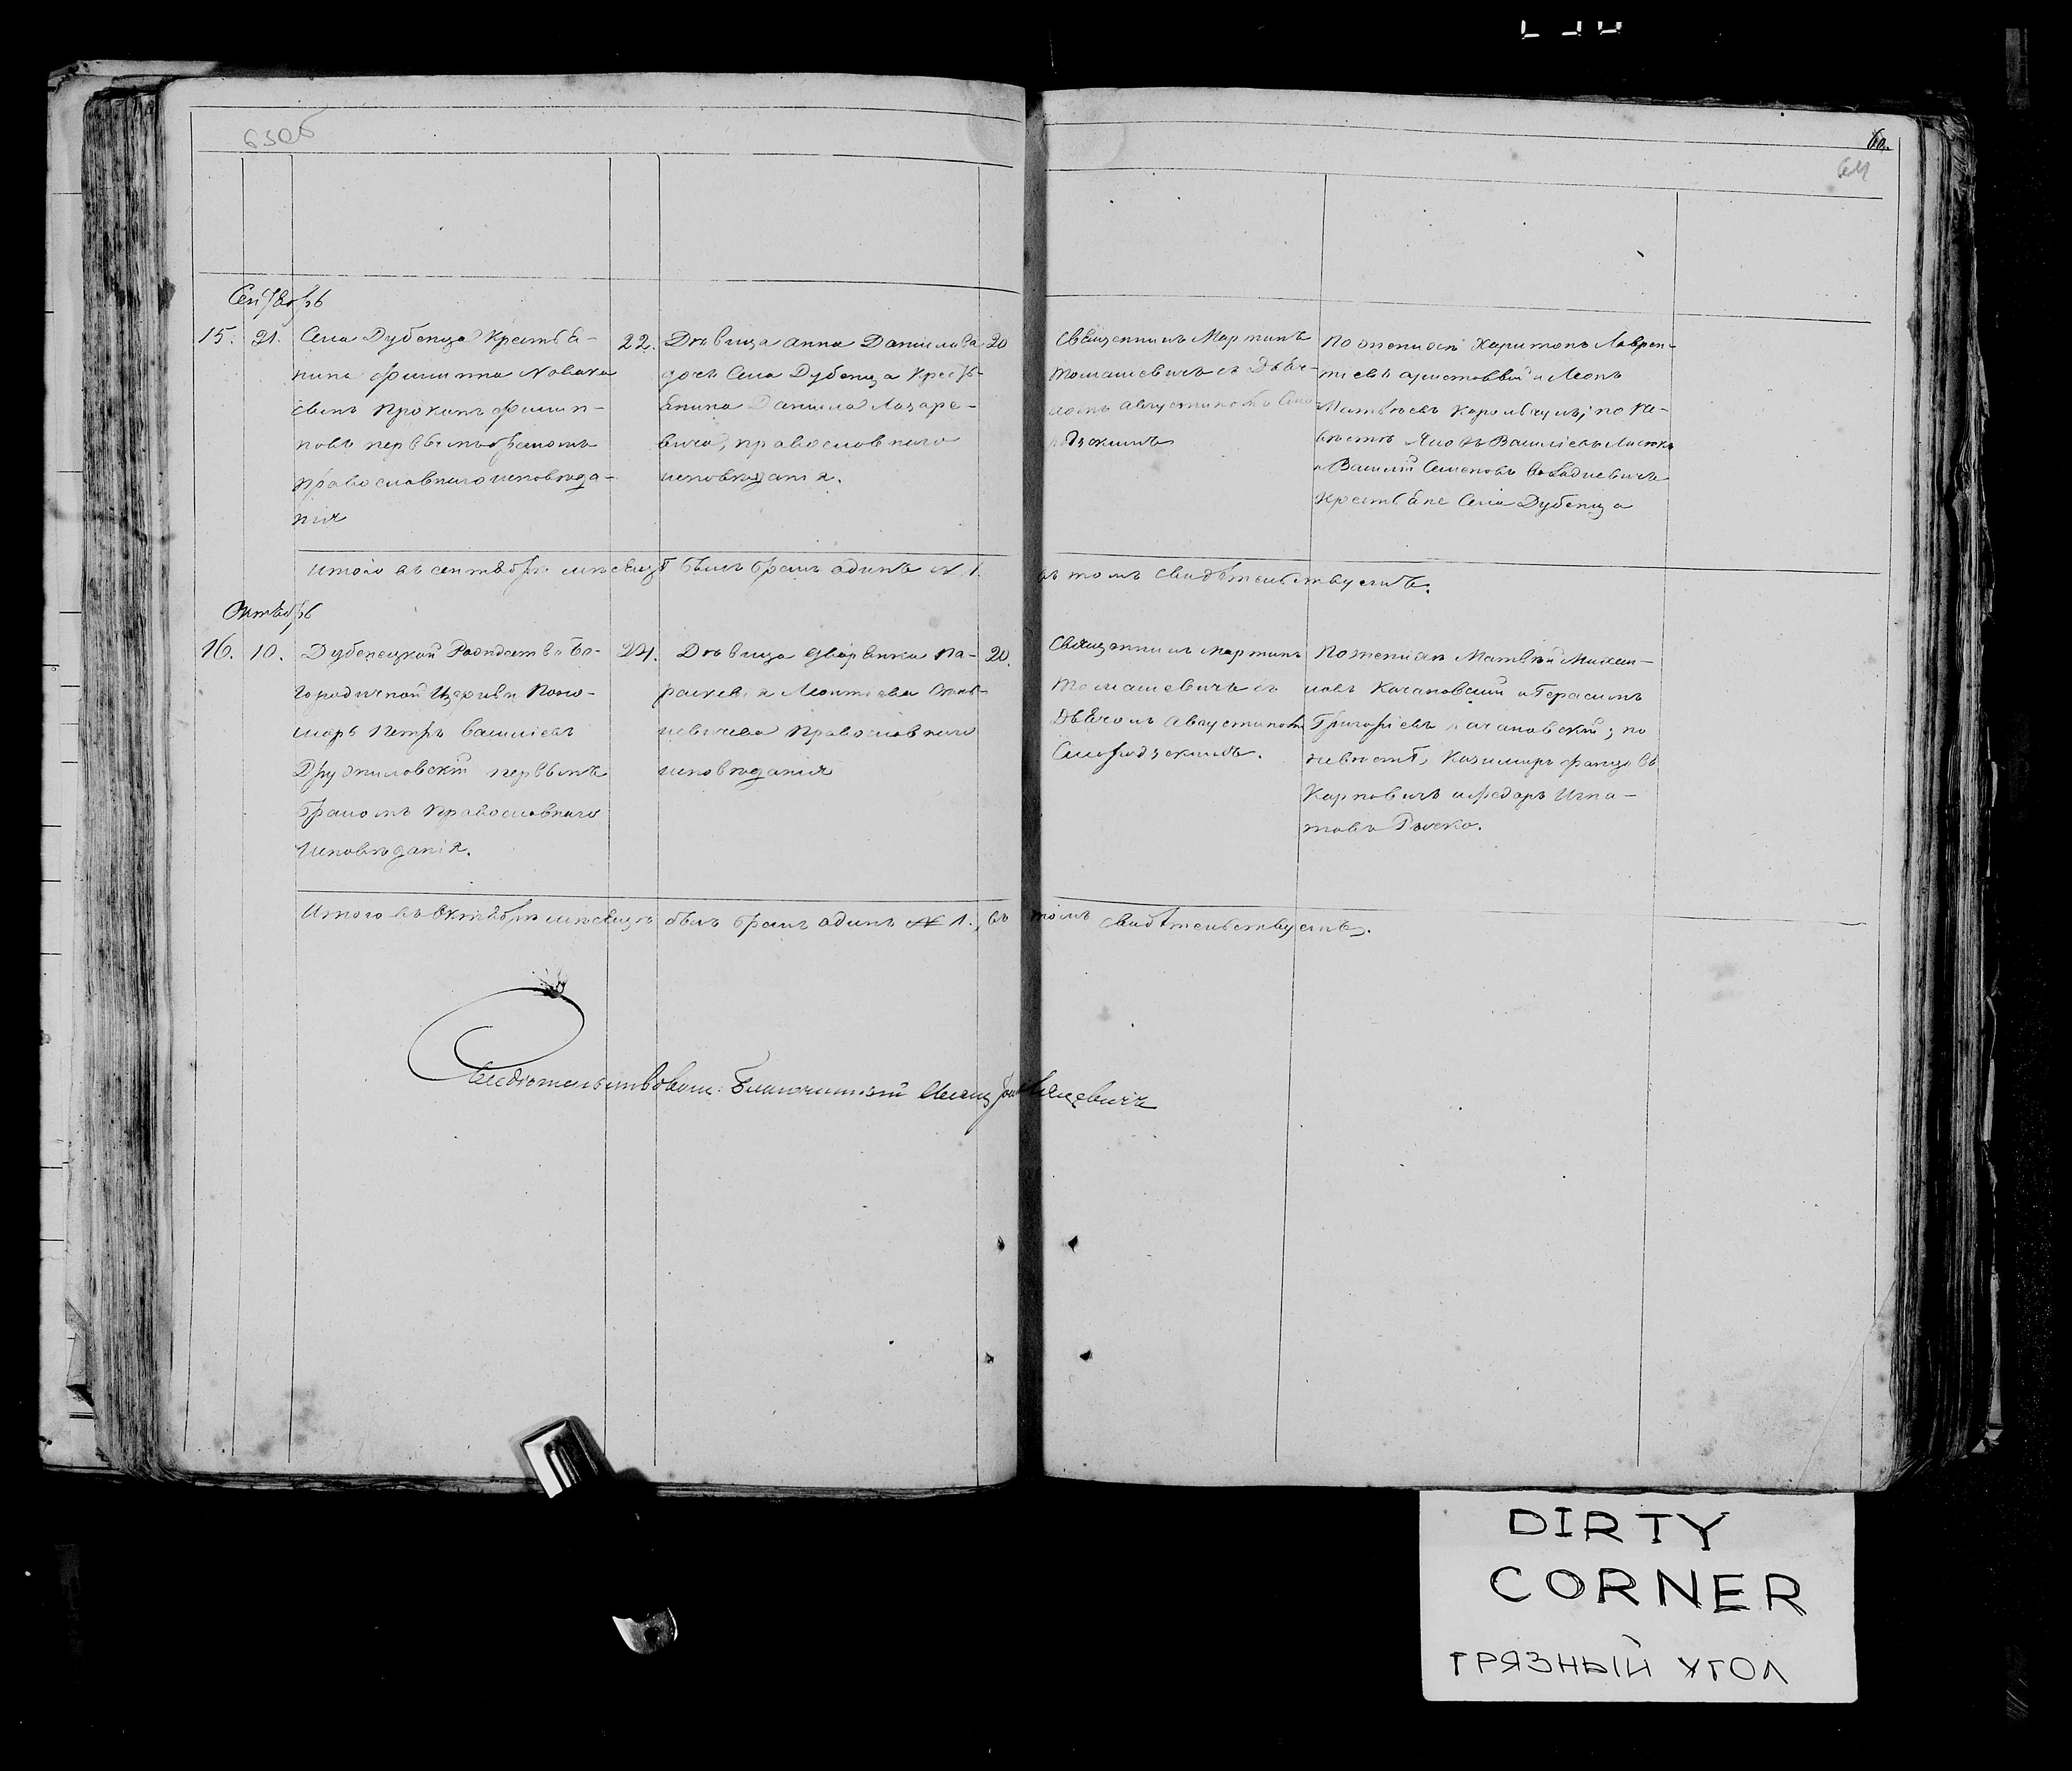 63об
60.
64
Сентябрь
15. 21. Села Дубенца Крестья-
нина Филиппа Новака
сынъ Прокопъ Филип-
повъ первымъ бракомъ
православнаго исповѣда-
нія
22. Дѣвица Анна Данилова
дочь Села Дубенца Кресть-
янина Данила Лазаре-
вича, православнаго
исповѣданія.
20
Священникъ Мартинъ
Томашевичъ съ Дьяч-
комъ Августиномъ
По женихѣ Харитонъ Лаврен-
тіевъ и Леонъ
Матвѣевъ по не-
вѣстѣ Яковъ Василіевъ
и Василій Семеновъ
Крестьяне Села Дубенца
Итого въ сентябрѣ мѣсяцѣ былъ бракъ одинъ № 1. въ томъ свидѣтельствуемъ.
Октябрь
16. 10. Дубенецкой Рождество Бо-
городичной Церкви Поно-
марь Петръ Василіевъ
Дружиловскій первымъ
бракомъ Православнаго
Исповѣданія.
24. Дѣвица дворянка Па-
раскевія Леонтіева
Православнаго
исповѣданія
20.
Священникъ Мартинъ
Томашевичъ съ
Дьячкомъ Августиномъ
По женихѣ Матвѣй Михаи-
ловъ Качановскій и Герасимъ
Григоріевъ Качановскій; по
невѣстѣ, Казимиръ
Карповичъ и Федоръ Игна-
товъ
Итого въ Октябрѣ мѣсяцѣ былъ бракъ одинъ № 1., въ томъ свидѣтельствуемъ.
Свидѣтельствовалъ: Благочинный
DIRTY
CORNER
ГРЯЗНЫЙ УГОЛ